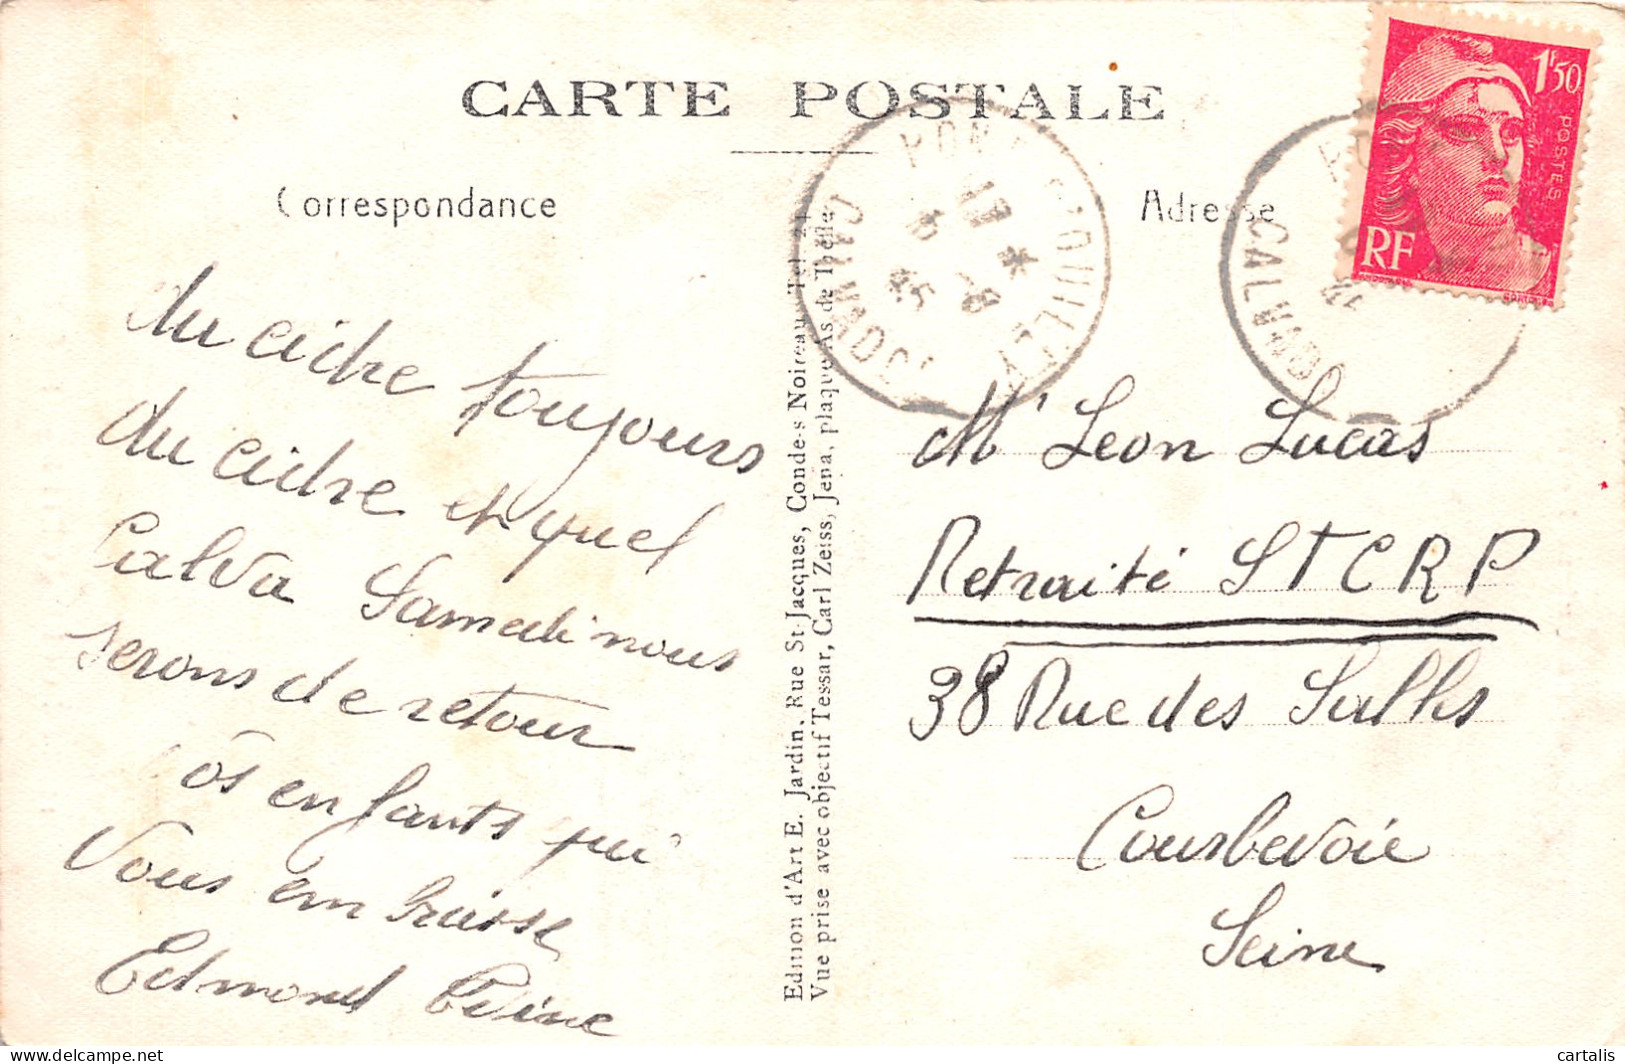 CARTE POSTALE
Correspondance
Adresse
1F50
POSTES
RF
PONT D'OUILLY
17 *
16 -8
45
CALVADOS
CALVADOS
du cidre toujours
du cidre et quel
Calva Samedi nous
serons de retour
Vos enfants qui
Vous embrasse
Edmond
Edition d'Art E. Jardin, Rue St-Jacques, Condé-s Noireau Tel. 24
Vue prise avec objectif Tessar, Carl Zeiss, Jena, plaque As de Trèfle
Mr Leon Lucas
Retraité STCRP
38 Rue des
Courbevoie
Seine
delcampe.net
cartalis